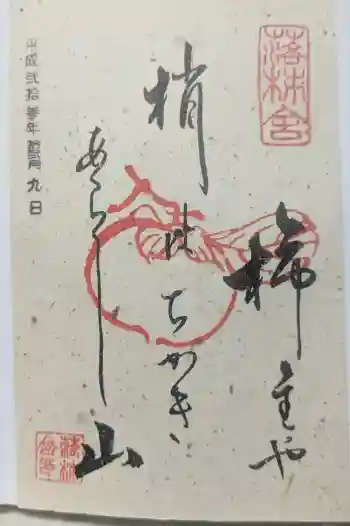 落柿舎
柿主や
梢はちかき
あらし山
平成弐拾参年 九日
落柿舎